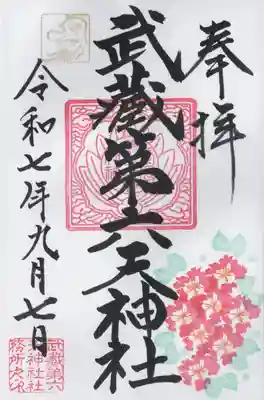 奉拝
武蔵第六天神社
令和七年九月七日
武蔵第六
神社社
務所之印